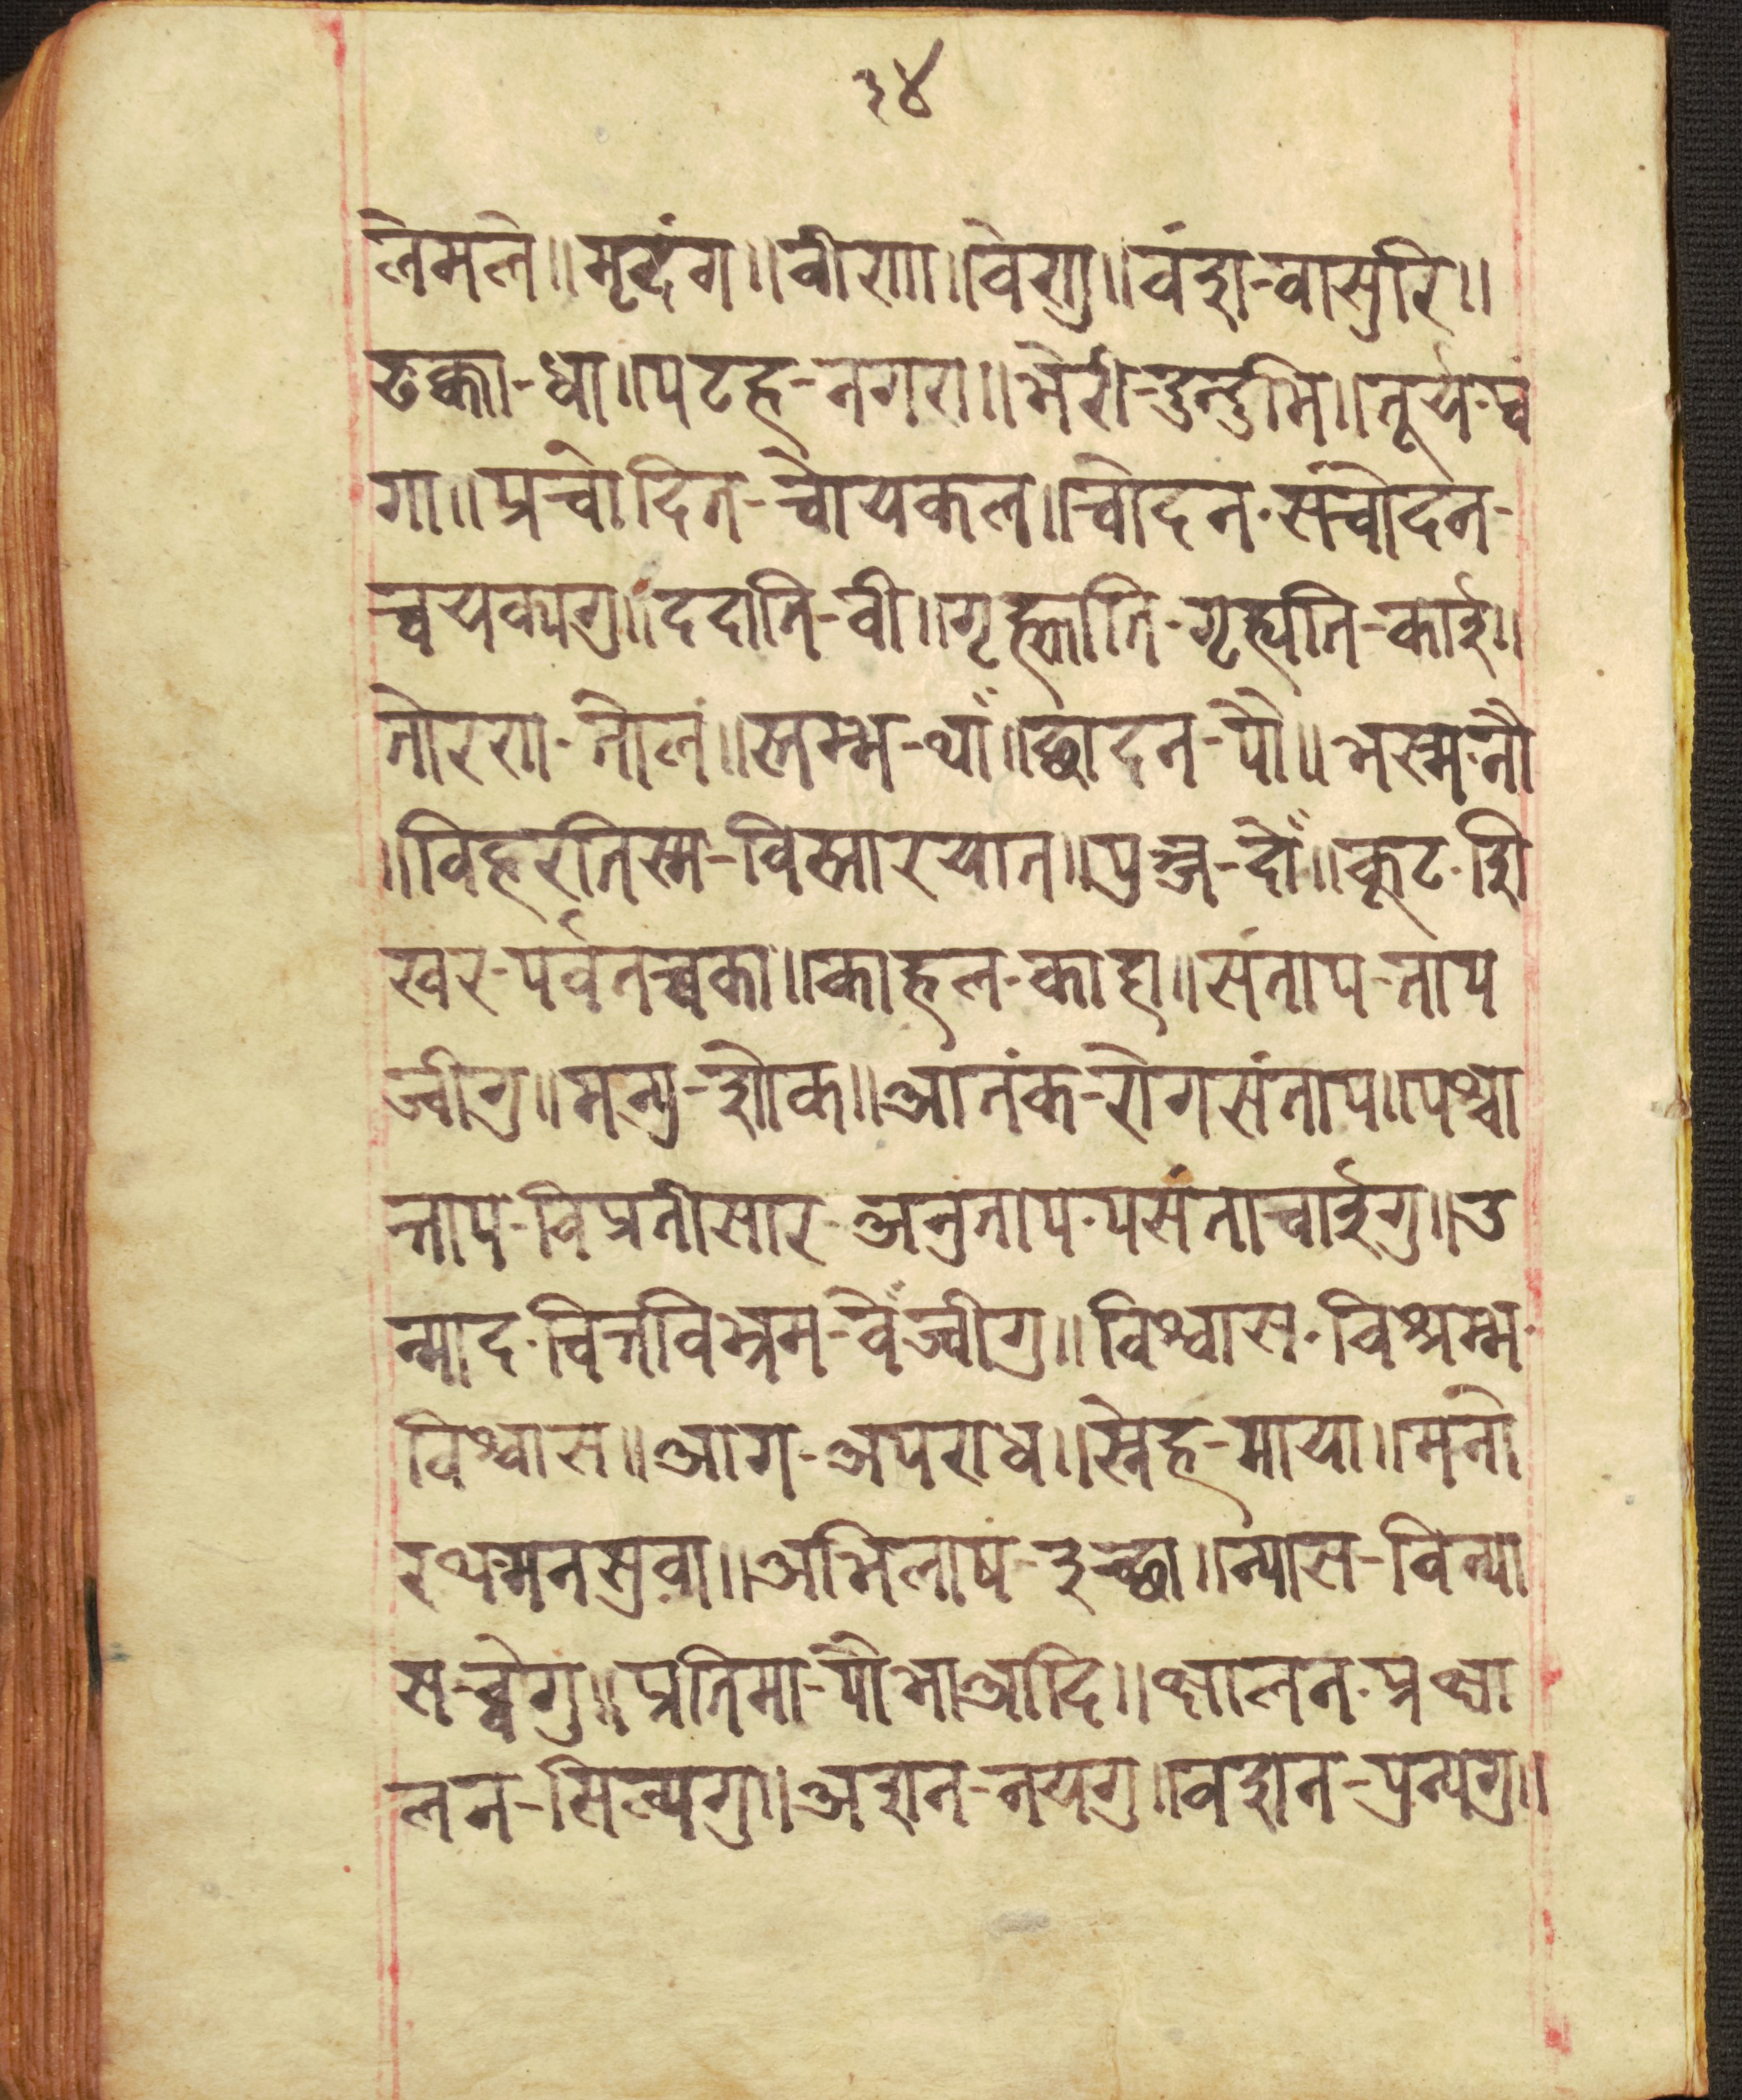 ३४
लेमले॥मृदंग॥वीणा॥वेणु॥वंश-वासुरि॥
ढक्का-धा॥पटह-नगरा॥भेरी-दुन्दुभि॥तूर्य-प्वं
गा॥प्रचोदित-च्वोयकल॥चोदन-संचोदन-
च्वयक्यगु॥ददाति-वी॥गृह्णाति-गृह्यति-काई॥
तोरण-तोलं॥स्तम्भ-थां॥छादन-पौ॥भस्म-नौ
॥विहरतिस्म-विस्तारयात॥पुञ्ज-दों॥कूट-शि
खर-पर्वतच्वका॥काहल-काहा॥संताप-ताप
ज्वीगु॥मन्यु-शोक॥आतंक-रोगसंताप॥पश्चा
त्ताप-विप्रतीसार-अनुताप-पसंताचाईगु॥उ
न्माद-चित्तविभ्रम-वेंज्वीगु॥विश्वास-विश्रम्भ-
विश्वास॥आग-अपराध॥स्नेह-माया॥मनो
रथ-मनसुवा॥अभिलाष-इच्छा॥न्यास-विन्या
स-छ्वेगु॥प्रतिमा-पौभाआदि॥क्षालन-प्रक्षा
लन-सिल्यगु॥अशन-नयगु॥वशन-पुन्यगु॥